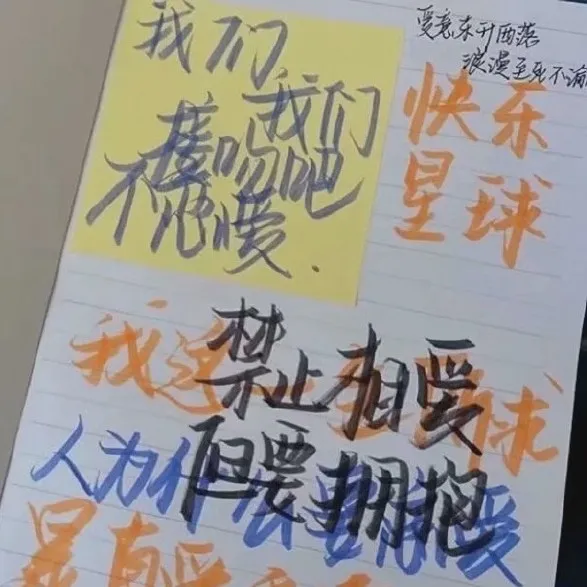 爱意东升西落
浪漫至死不渝
我们
我们
接吻吧
不 爱.
快乐
星球
我 球
禁止相爱
但要拥抱
人为什么要 爱